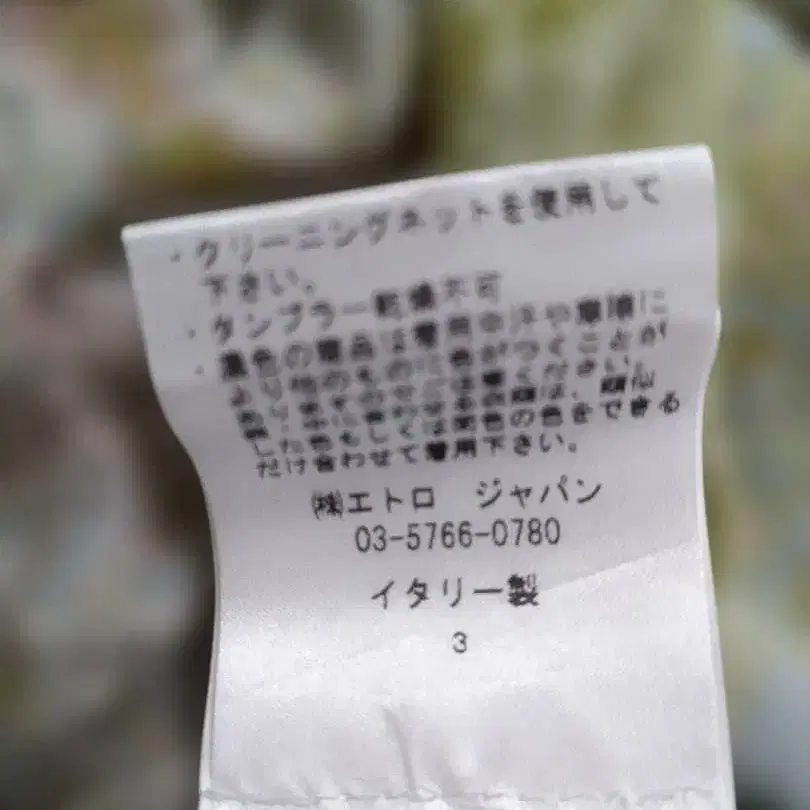 ・クリーニングネットを使用して
下さい。
・タンブラー乾燥不可
・濃色の製品は着用中汗や摩擦に
より他のものに色がつくことが
ありますのでご注意ください。
した色もしくは同色の色をできる
だけ合わせて着用下さい。
㈱エトロ ジャパン
03-5766-0780
イタリー製
3